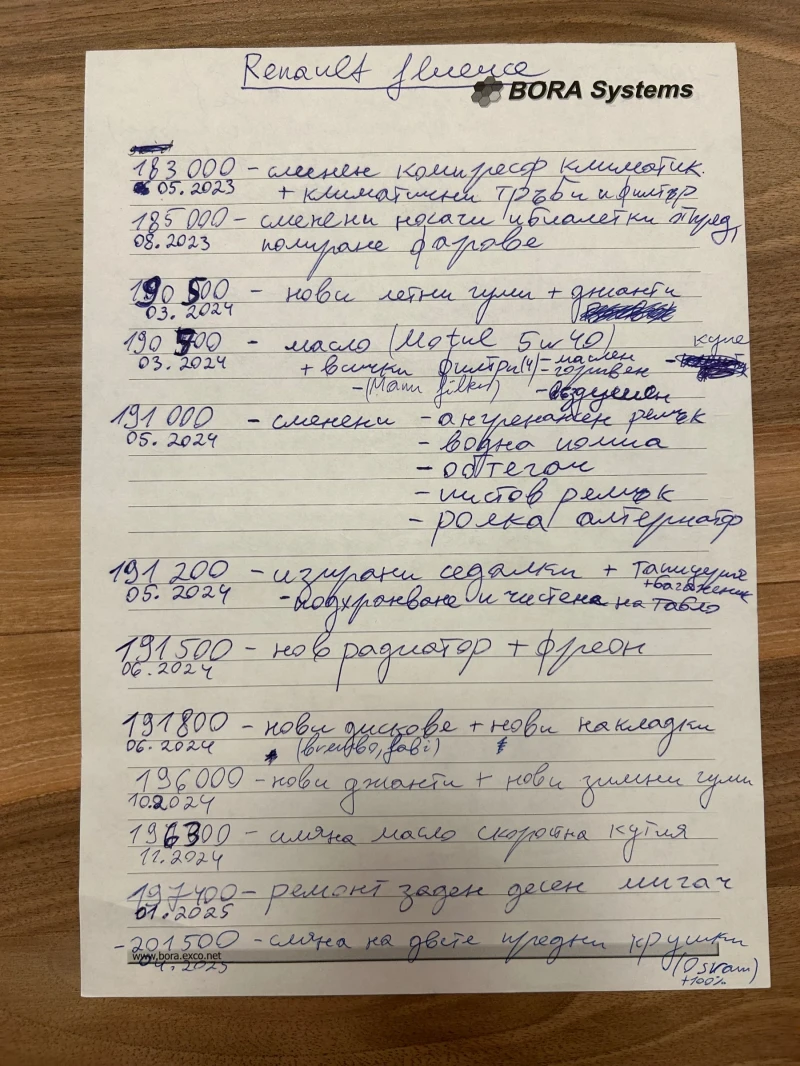 Renault fluence
BORA Systems
183 000 - сменен компресор климатик.
05.2023 + климатични тръби и филтър
185 000 - сменени носачи и биалетки отпред,
08.2023 полиране фарове
190 500 - нови летни гуми + джанти
03.2024
190 700 - масло (Motul 5w40) купе
03.2024 + всички филтри (4) - маслен - горивен
- (Mann filter) - въздушен
191 000 - сменени - ангренажен ремък
05.2024 - водна помпа
- обтегач
- пистов ремък
- ролка алтернатор
191 200 - изпрани седалки + тапицерия
05.2024 - подхранване и чистене на табло +багажник
191 500 - нов радиатор + фреон
06.2024
191800 - нови дискове + нови накладки
06.2024 (brembo, )
196000 - нови джанти + нови зимни гуми
10.2024
196300 - смяна масло скоростна кутия
11.2024
197400 - ремонт заден десен мигач
01.2025
- 201500 - смяна на двете предни крушки
www.bora.exco.net
04.2025 (Osram)
+100%